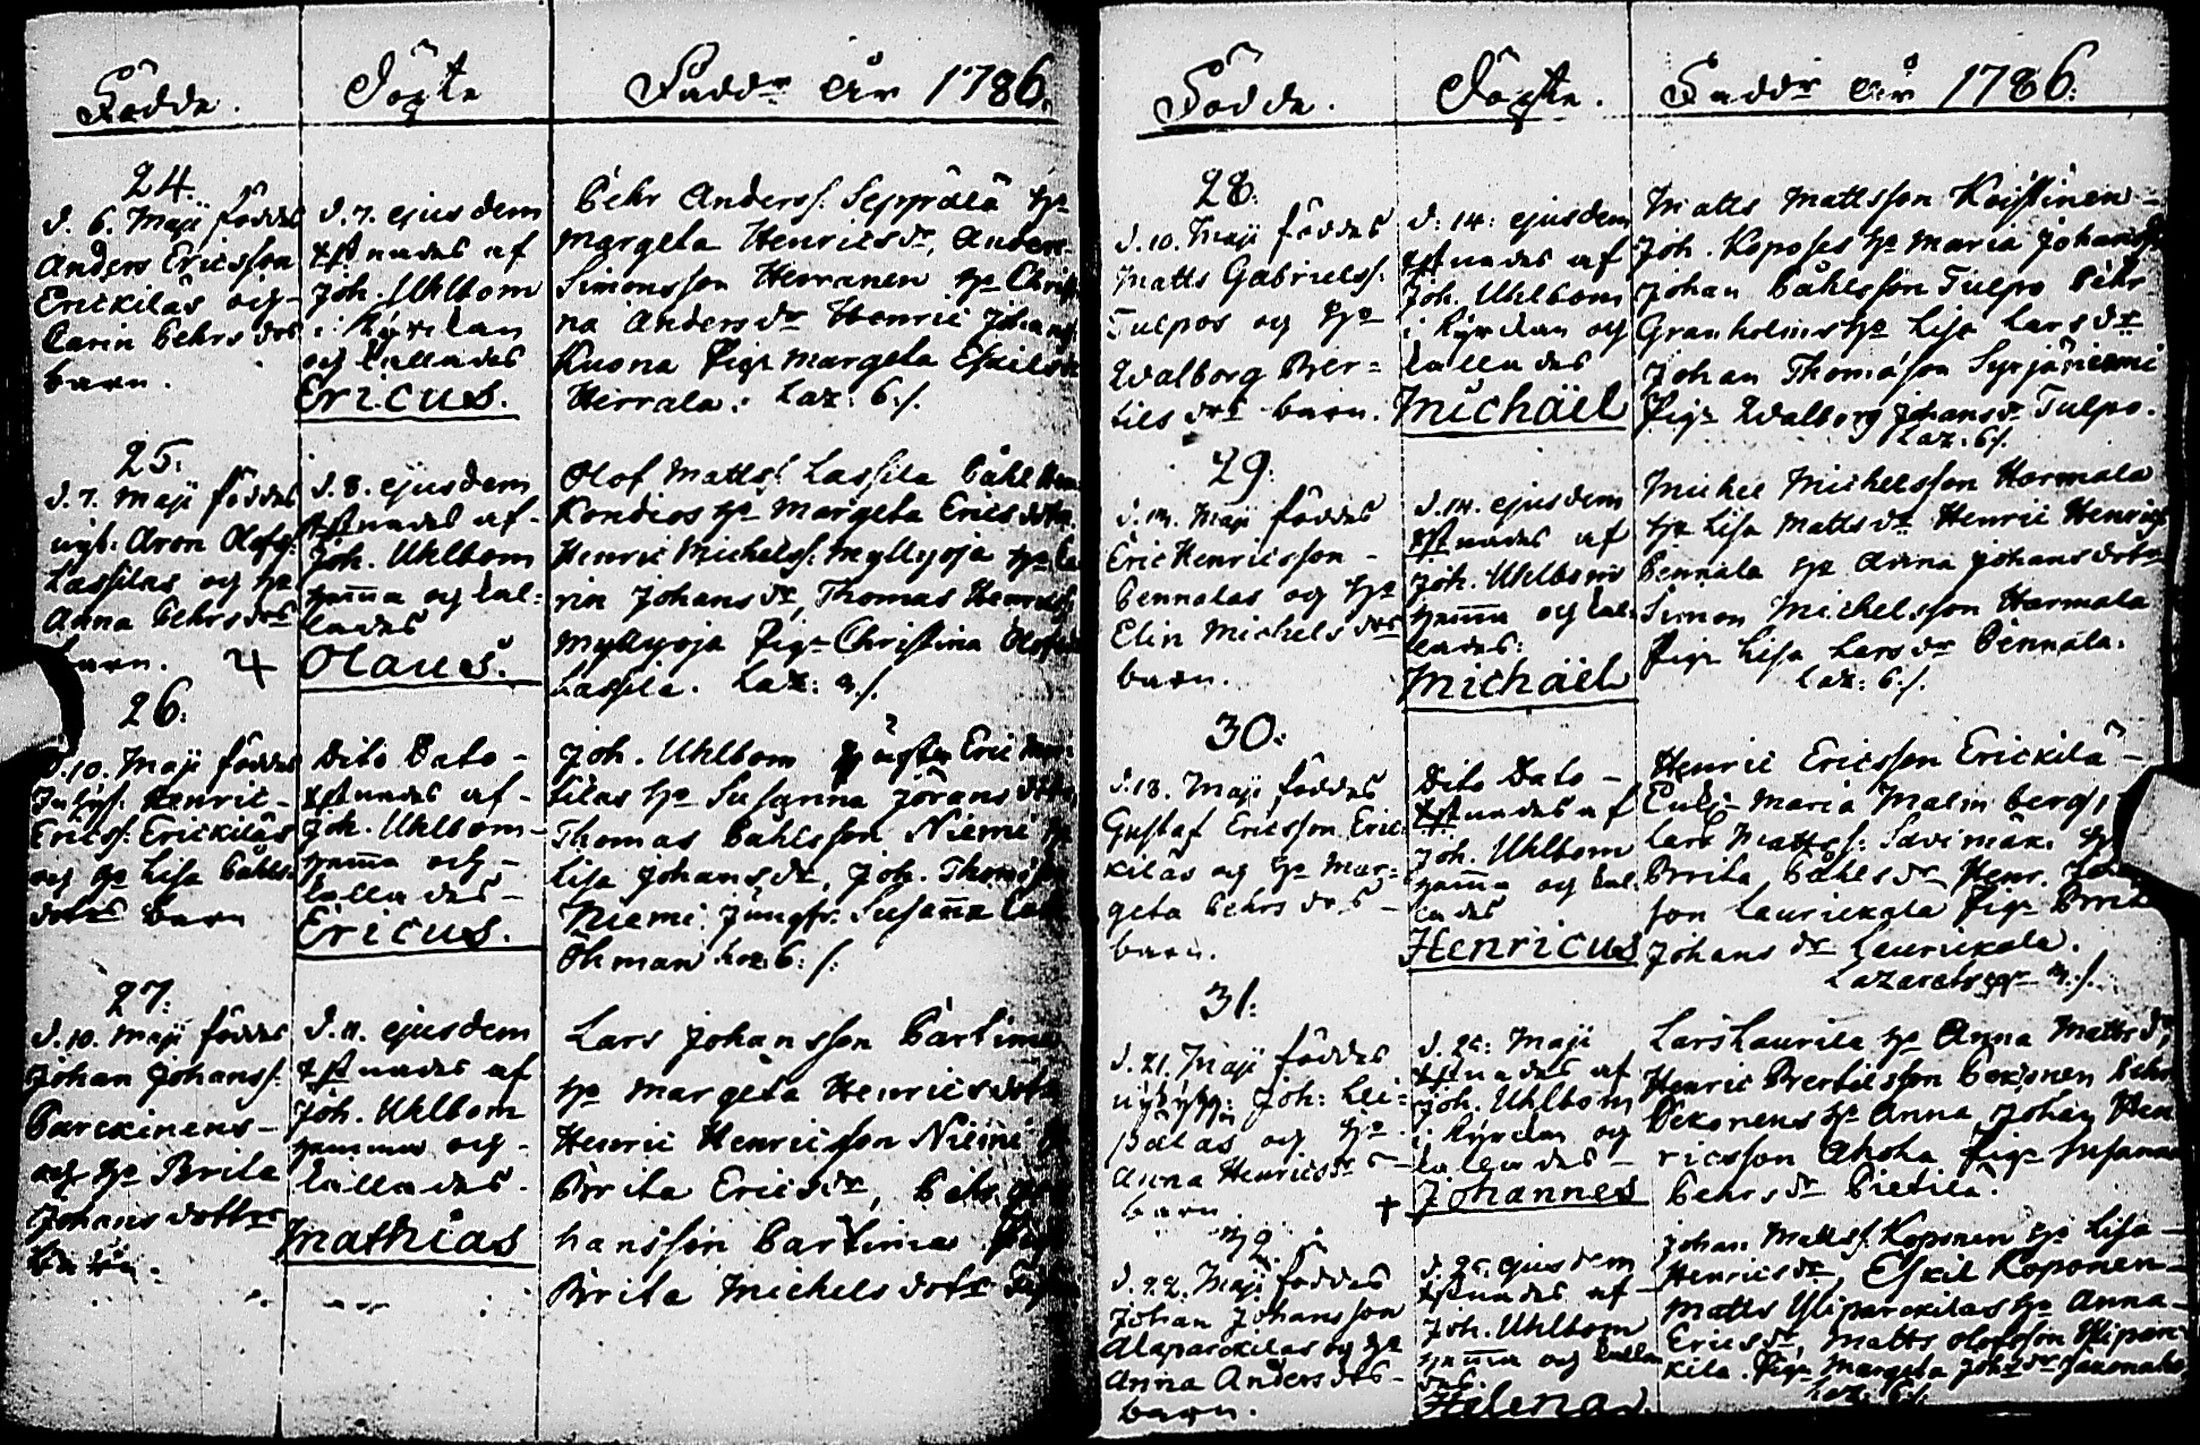 Födde.
Döpte
Faddr år 1786.
24.
d. 6. Maji föddes
Anders Ericsson
Erickiläs och
Carin Pehrs drs
barn.
d. 7. ejusdem
Xstnades af
Joh. Uhlbom
i Kyrckan
och kallades
Ericus.
Pehr Anderss. Seppälä hu
Margeta Henricsdr, Anders
Simonsson Herranen hu Christi
na Andersdr Henric Johans
Kuona Pig. Margeta Eskilsdr
Hirrala. Laz: 6./.
25.
d. 7. Maji föddes
Aron Olofs:
Lassilas og hu
Anna Pehrsdrs
barn.
d. 8. ejusdem
Xstnades af
Joh. Uhlbom
hemma og kal-
lades
Olaus.
Olof Matts. Lassila Påhl
Kondios hu Margeta Erics dotr
Henric Michelss. Myllyoja hu Ca
rin Johans dr, Thomas Henrics
Myllyoja Pigr Christina Olofs
Lassila. Laz: 3./.
26.
d. 10. Maji föddes
Henric
Ericss. Erickiläs
og hu Lisa Påhls
dotrs barn
Dito Dato
Xstnades af
Joh. Uhlbom
hemma och
kallades
Ericus.
Joh. Uhlbom Eric
kiläs hu Susanna Jörans dotr,
Thomas Påhlsson Niemi hu
Lisa Johans dr, Joh. Thomsson
Niemi. Jungfr. Susanna
Öhman Laz: 6:/:
27.
d. 10. Maji föddes
Johan Johanss:
Parckinens
och hu Brita
Johans dotters
barn.
d. 11. ejusdem
Xstnades af
Joh. Uhlbom
hemma och
kallades
Mathias
Lars Johansson Partima
hu Margeta Henricsdotr
Henric Henricsson Niemi
Brita Ericsdr, Pehr Jo
hansson Partimas Pig
Brita Michels dotr
Födde.
Döpte.
Faddr år 1786.
28.
d. 10. Maji föddes
Matts Gabrielss:
Tulpos og hu
Walborg Ber=
tils drs barn.
d: 14: ejusdem
Xstnades af
Joh. Uhlbom
i Kyrckan og
kallades
Michäel
Matts Mattsson Koistinen
Joh. Koposes hu Maria Johansdr
Johan Påhlsson Tulpo Pehr
Granholms hu Lisa Larsdr
Johan Thomasson Syrjäniemi
Pigr Walborg Johansdr Tulpo.
Laz: 6/.
29.
d. 13. Maji föddes
Eric Henricsson
Pennalas og hu
Elin Michels drs
barn.
d. 14. ejusdem
Xstnades af
Joh. Uhlbom
hemma og kal-
lades:
Michäel
Michel Michelsson Harmala
hu Lisa Mattsdr Henric Henrics
Pennala hu Anna Johansdotr
Simon Michelsson Harmala
Pigr Lisa Larsdr Pennala.
Laz: 6./.
30.
d. 13. Maji föddes
Gustaf Ericsson Eric
kiläs og hu Mar=
geta Pehrs drs
barn.
Dito Dato
Xstnades af
Joh. Uhlbom
hemma og kal-
lades
Henricus
Henric Ericsson Erickilä
Enk. Maria Malmberg,
Lars Mattss. Savimäki hu
Brita Påhlsdr Henr.
son Laurickala Pigr Brita
Johans dr Laurickala.
Lazarets 3./.
31.
d. 21. Maji föddes
Joh: Lei=
pälas og hu
Anna Henricsdrs
barn.
d. 25: Maji
Xstnades af
Joh. Uhlbom
i Kyrckan og
kallades
† Johannes
Lars Laurila hu Anna Mattsdr,
Henric Bertilsson Pekonen Pehr
Pekonens hu Anna Johan Hen
ricsson Ahola Pigr Susanna
Pehrsdr Pietilä.
32.
d. 22. Maji föddes
Johan Johansson
Alaparckilas og hu
Anna Anders drs
barn.
d. 25. ejusdem
Xstnades af
Joh. Uhlbom
hemma och kalla
des.
Helena.
Johan Mattss. Koponen hu Lisa
Henricsdr, Eskil Koponen
Matts Yliparckilas hu Anna
Ericsdr, Matts Olofsson Yliparc
kila. Pigr Margeta Joh. dr
Laz: 6/.